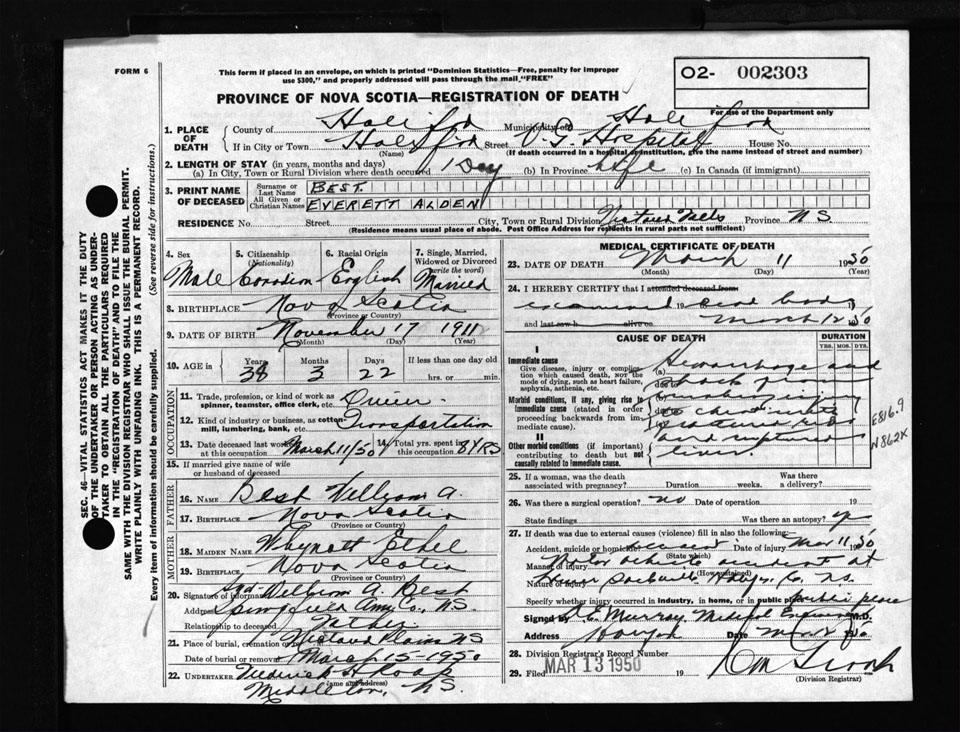 FORM 6
This form if placed in an envelope, on which is printed "Dominion Statistics—Free, penalty for improper
use $300," and properly addressed will pass through the mail "FREE"
O2- 002303
For use of the Department only
PROVINCE OF NOVA SCOTIA—REGISTRATION OF DEATH
SEC. 46—VITAL STATISTICS ACT MAKES IT THE DUTY
OF THE UNDERTAKER OR PERSON ACTING AS UNDER-
TAKER TO OBTAIN ALL THE PARTICULARS REQUIRED
IN THE "REGISTRATION OF DEATH" AND TO FILE THE
SAME WITH THE DIVISION REGISTRAR WHO SHALL ISSUE THE BURIAL PERMIT.
WRITE PLAINLY WITH UNFADING INK. THIS IS A PERMANENT RECORD.
Every item of information should be carefully supplied. (See reverse side for instructions.)
1. PLACE OF DEATH County of Halifax Municipality of Halifax
If in City or Town Halifax Street V.G. Hospital House No.
(Name) (If death occurred in a hospital or institution, give the name instead of street and number)
2. LENGTH OF STAY (in years, months and days)
(a) In City, Town or Rural Division where death occurred 1 Day (b) In Province Life (c) In Canada (if immigrant)
3. PRINT NAME OF DECEASED Surname or Last Name BEST
All Given or Christian Names EVERETT ALDEN
RESIDENCE No. Street City, Town or Rural Division Province N.S.
(Residence means usual place of abode. Post Office Address for residents in rural parts not sufficient)
4. Sex Male
5. Citizenship (Nationality) Canadian
6. Racial Origin English
7. Single, Married, Widowed or Divorced (write the word) Married
8. BIRTHPLACE Nova Scotia
(Province or Country)
9. DATE OF BIRTH November 17 1911
(Month) (Day) (Year)
10. AGE in Years 38 Months 3 Days 22 If less than one day old
hrs. or min.
OCCUPATION
11. Trade, profession, or kind of work as spinner, teamster, office clerk, etc.
12. Kind of industry or business, as cotton mill, lumbering, bank, etc. Transportation
13. Date deceased last worked at this occupation March 11/50 14. Total yrs. spent in this occupation 8 YRS
15. If married give name of wife or husband of deceased
FATHER
16. NAME Best William A.
17. BIRTHPLACE Nova Scotia
(Province or Country)
MOTHER
18. MAIDEN NAME Whynott Ethel
19. BIRTHPLACE Nova Scotia
(Province or Country)
20. Signature of informant William A. Best
Address Springfield Anna Co., N.S.
Relationship to deceased Father
21. Place of burial, cremation or N.S.
Date of burial or removal March 15-1950
22. UNDERTAKER
(Name and address)
Middleton, N.S.
MEDICAL CERTIFICATE OF DEATH
23. DATE OF DEATH March 11 1950
(Month) (Day) (Year)
24. I HEREBY CERTIFY that I attended deceased from
examined dead body 19
and last saw h alive on March 12 50
CAUSE OF DEATH DURATION
YRS. MOS. DYS.
I
Immediate cause
Give disease, injury or complication which caused death, NOT the mode of dying, such as heart failure, asphyxia, asthenia, etc.
(a) Hemorrhage and
shock from
Morbid conditions, if any, giving rise to immediate cause (stated in order proceeding backwards from immediate cause).
(b) injury
to chest with
(c) fractured ribs
II
Other morbid conditions (if important) contributing to death but not causally related to immediate cause.
and ruptured
liver.
E816.9
N862X
25. If a woman, was the death associated with pregnancy? Duration weeks. Was there a delivery?
26. Was there a surgical operation? no Date of operation 19
State findings Was there an autopsy?
27. If death was due to external causes (violence) fill in also the following:
Accident, suicide or homicide? accident Date of injury Mar 11 1950
(State which)
Manner of injury Motor vehicle accident at
(How sustained)
Nature of injury Lower Sackville Hfx. Co. N.S.
Specify whether injury occurred in industry, in home, or in public place public place
Signed by Murray Medical Examiner M.D.
Address Halifax Date
28. Division Registrar's Record Number
29. Filed MAR 13 1950 19
(Division Registrar)